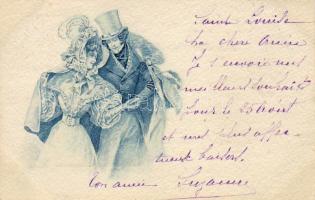 Louise
ma chère amie
Je t'envoie mes
meilleurs souhaits
pour le 25 août
et mes plus affec-
tueux baisers.
Ton amie Suzanne